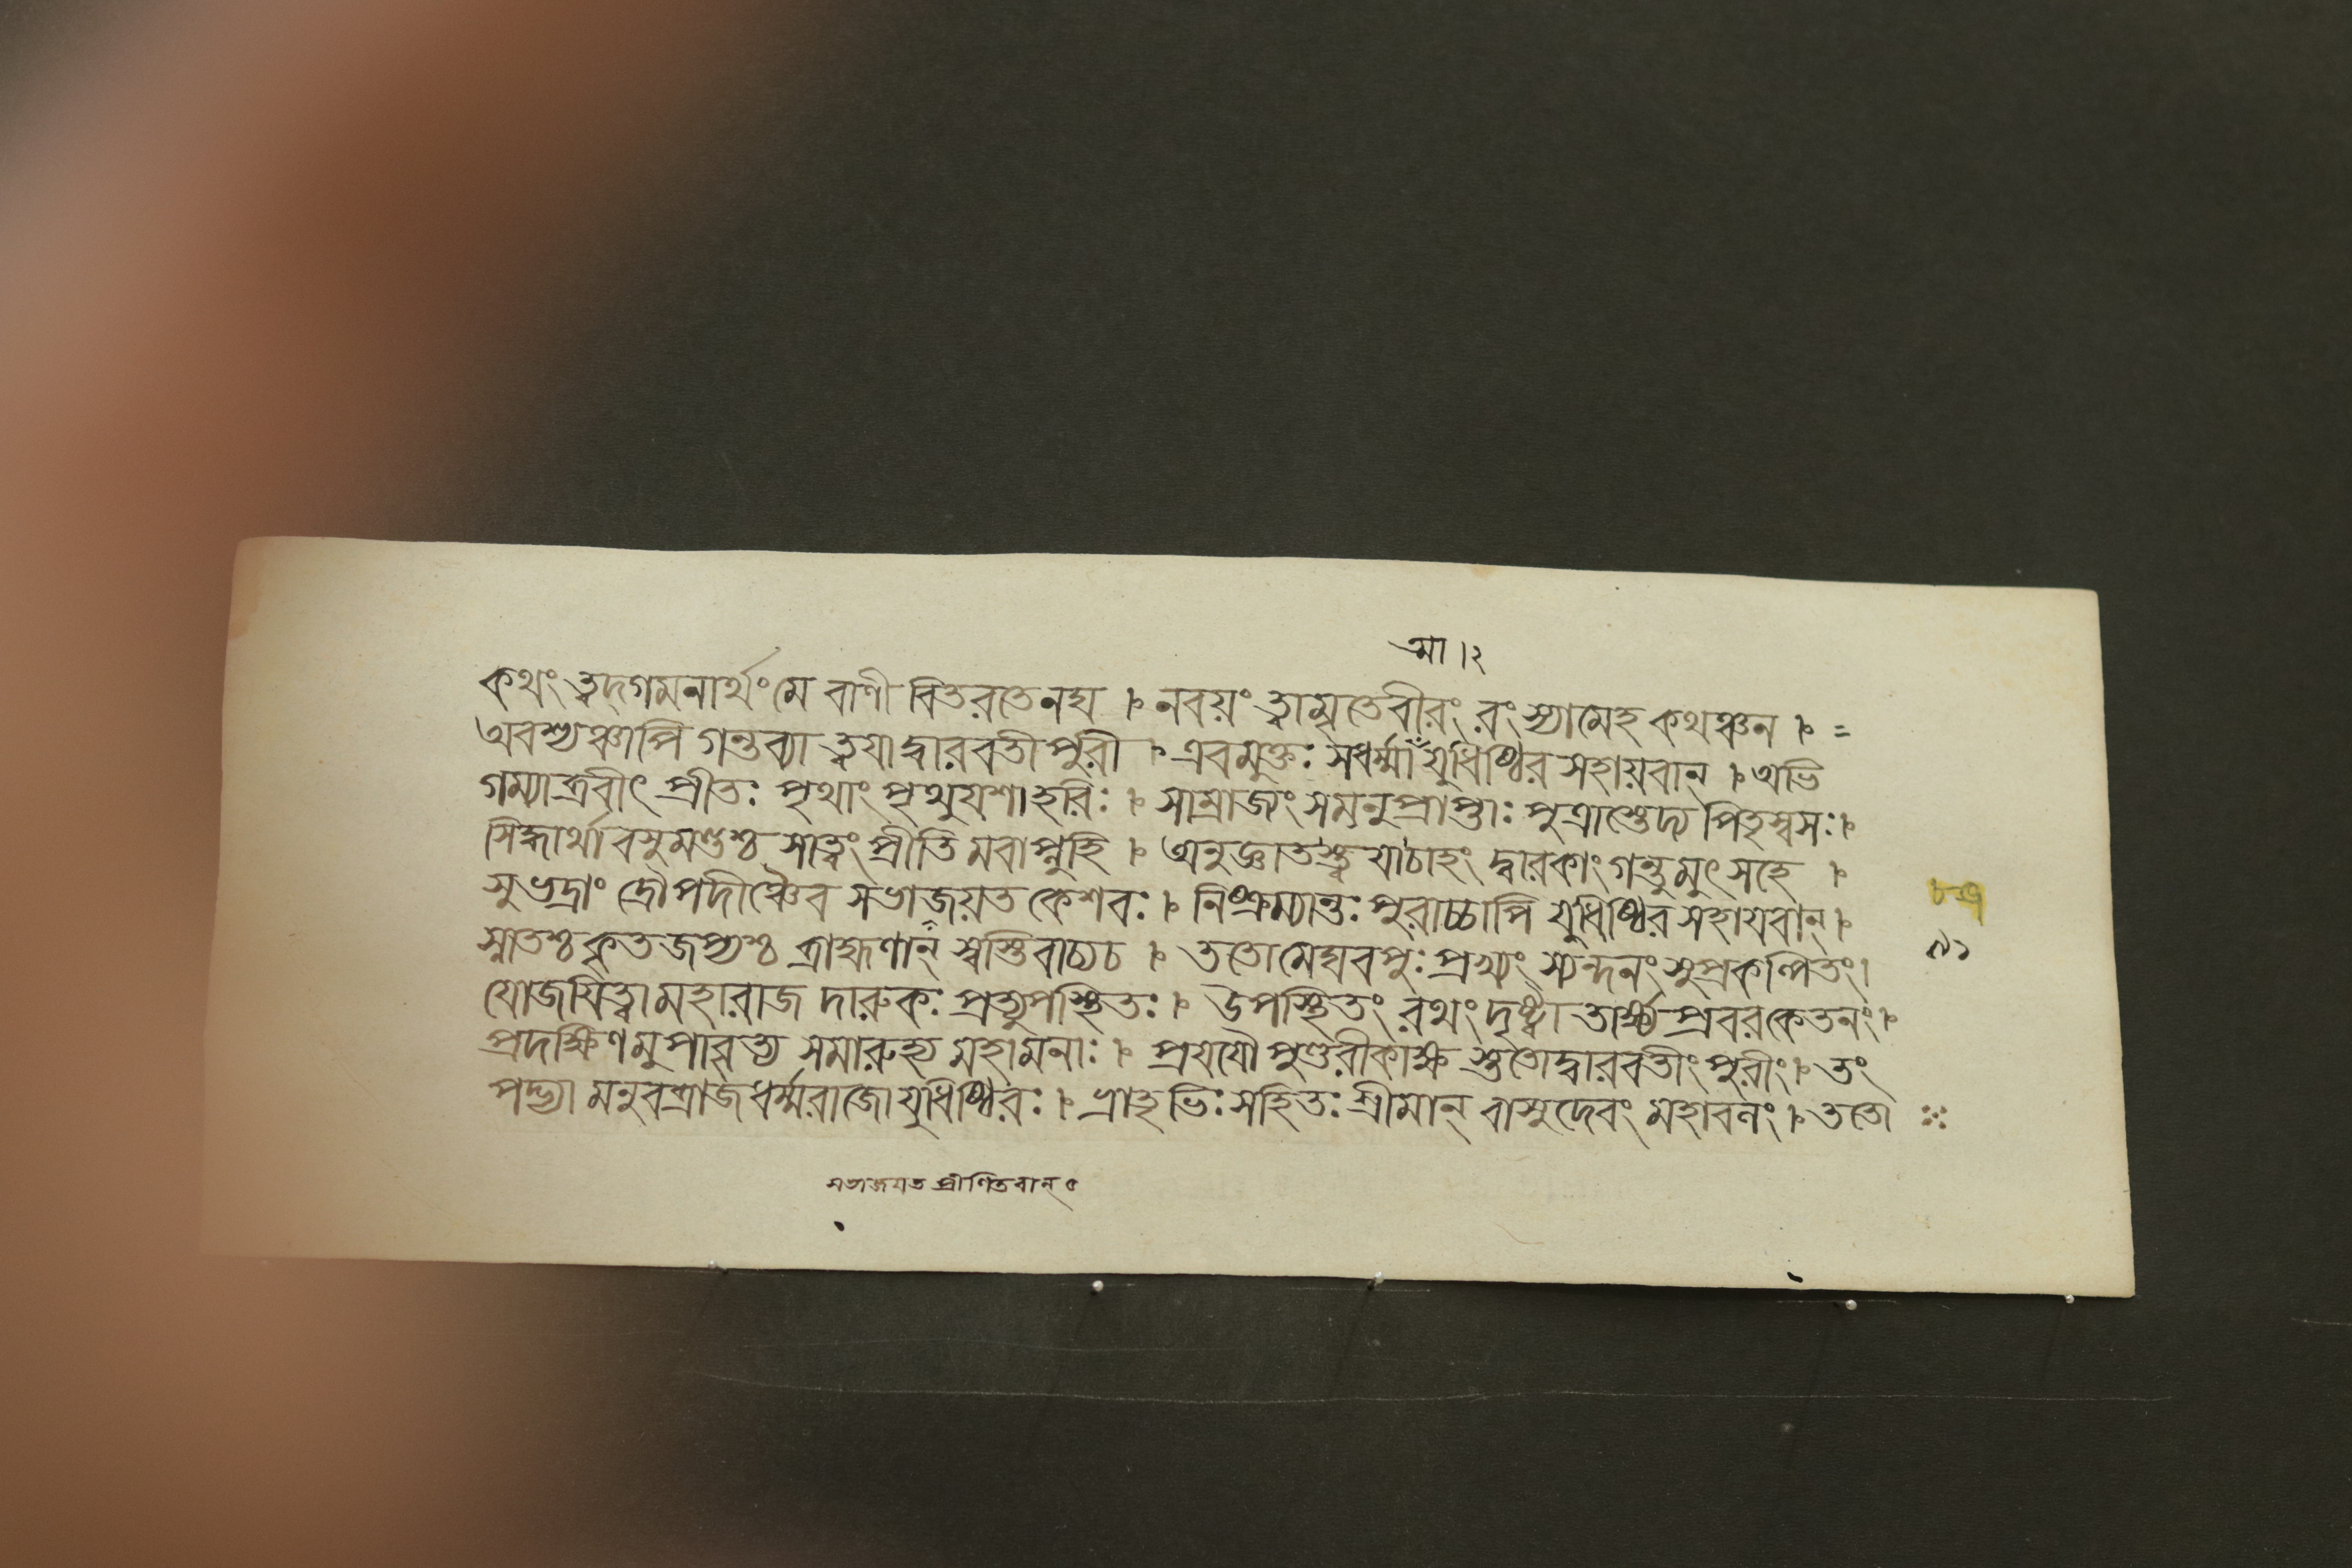 মা ।২
কথং ত্বদ্গমনার্থং মে বাণী বিতরতেনঘ । নবয়ং ত্বামৃতেবীরং রংস্যামেহ কথঞ্চন । =
অবশ্যঞ্চাপি গন্তব্যা ত্বযাদ্বারবতীপুরী । এবমুক্তঃ সধর্ম্মা যুধিষ্ঠির সহায়বান্ । অভি
গম্যাব্রবীৎ প্রীতঃ পৃথাং পৃথুযশাহরিঃ । সাম্রাজ্যং সমনুপ্রাপ্তাঃ পুত্রাস্তেদ্য পিতৃস্বসঃ।
সিদ্ধার্থা বসুমণ্ডশ্চ সাত্বং প্রীতি মবাপ্নুহি । অনুজ্ঞাতস্ত্ব যাচাহং দ্বারকাং গন্তুমুৎ সহে ।
সুভদ্রাং দ্রৌপদীঞ্চৈব সভাজয়ত কেশবঃ । নিষ্ক্রম্যান্তঃ পুরাচ্চাপি যুধিষ্ঠির সহাযবান্।
স্নাতশ্চ কৃতজপ্যশ্চ ব্রাহ্মণান্ স্বস্তিবাচ্যচ । ততোমেঘবপুঃ প্রখ্যং স্যন্দনং সুপ্রকল্পিতং।
যোজযিত্বা মহারাজ দারুকঃ প্রত্যুপস্থিতঃ । উপস্থিতং রথং দৃষ্ট্বা তার্ক্ষ্য প্রবরকেতনং।
প্রদক্ষিণমুপাবৃত্য সমারুহ্য মহামনাঃ । প্রযযৌ পুণ্ডরীকাক্ষ স্ততোদ্বারবতীং পুরীং। তং
পদ্ভ্যা মনুবব্রাজ ধর্ম্মরাজো যুধিষ্ঠিরঃ । ভ্রাতৃভিঃ সহিতঃ শ্রীমান্ বাসুদেবং মহাবনং । ততো
৯১
সভাজযত প্রীণিতবান্ ৫